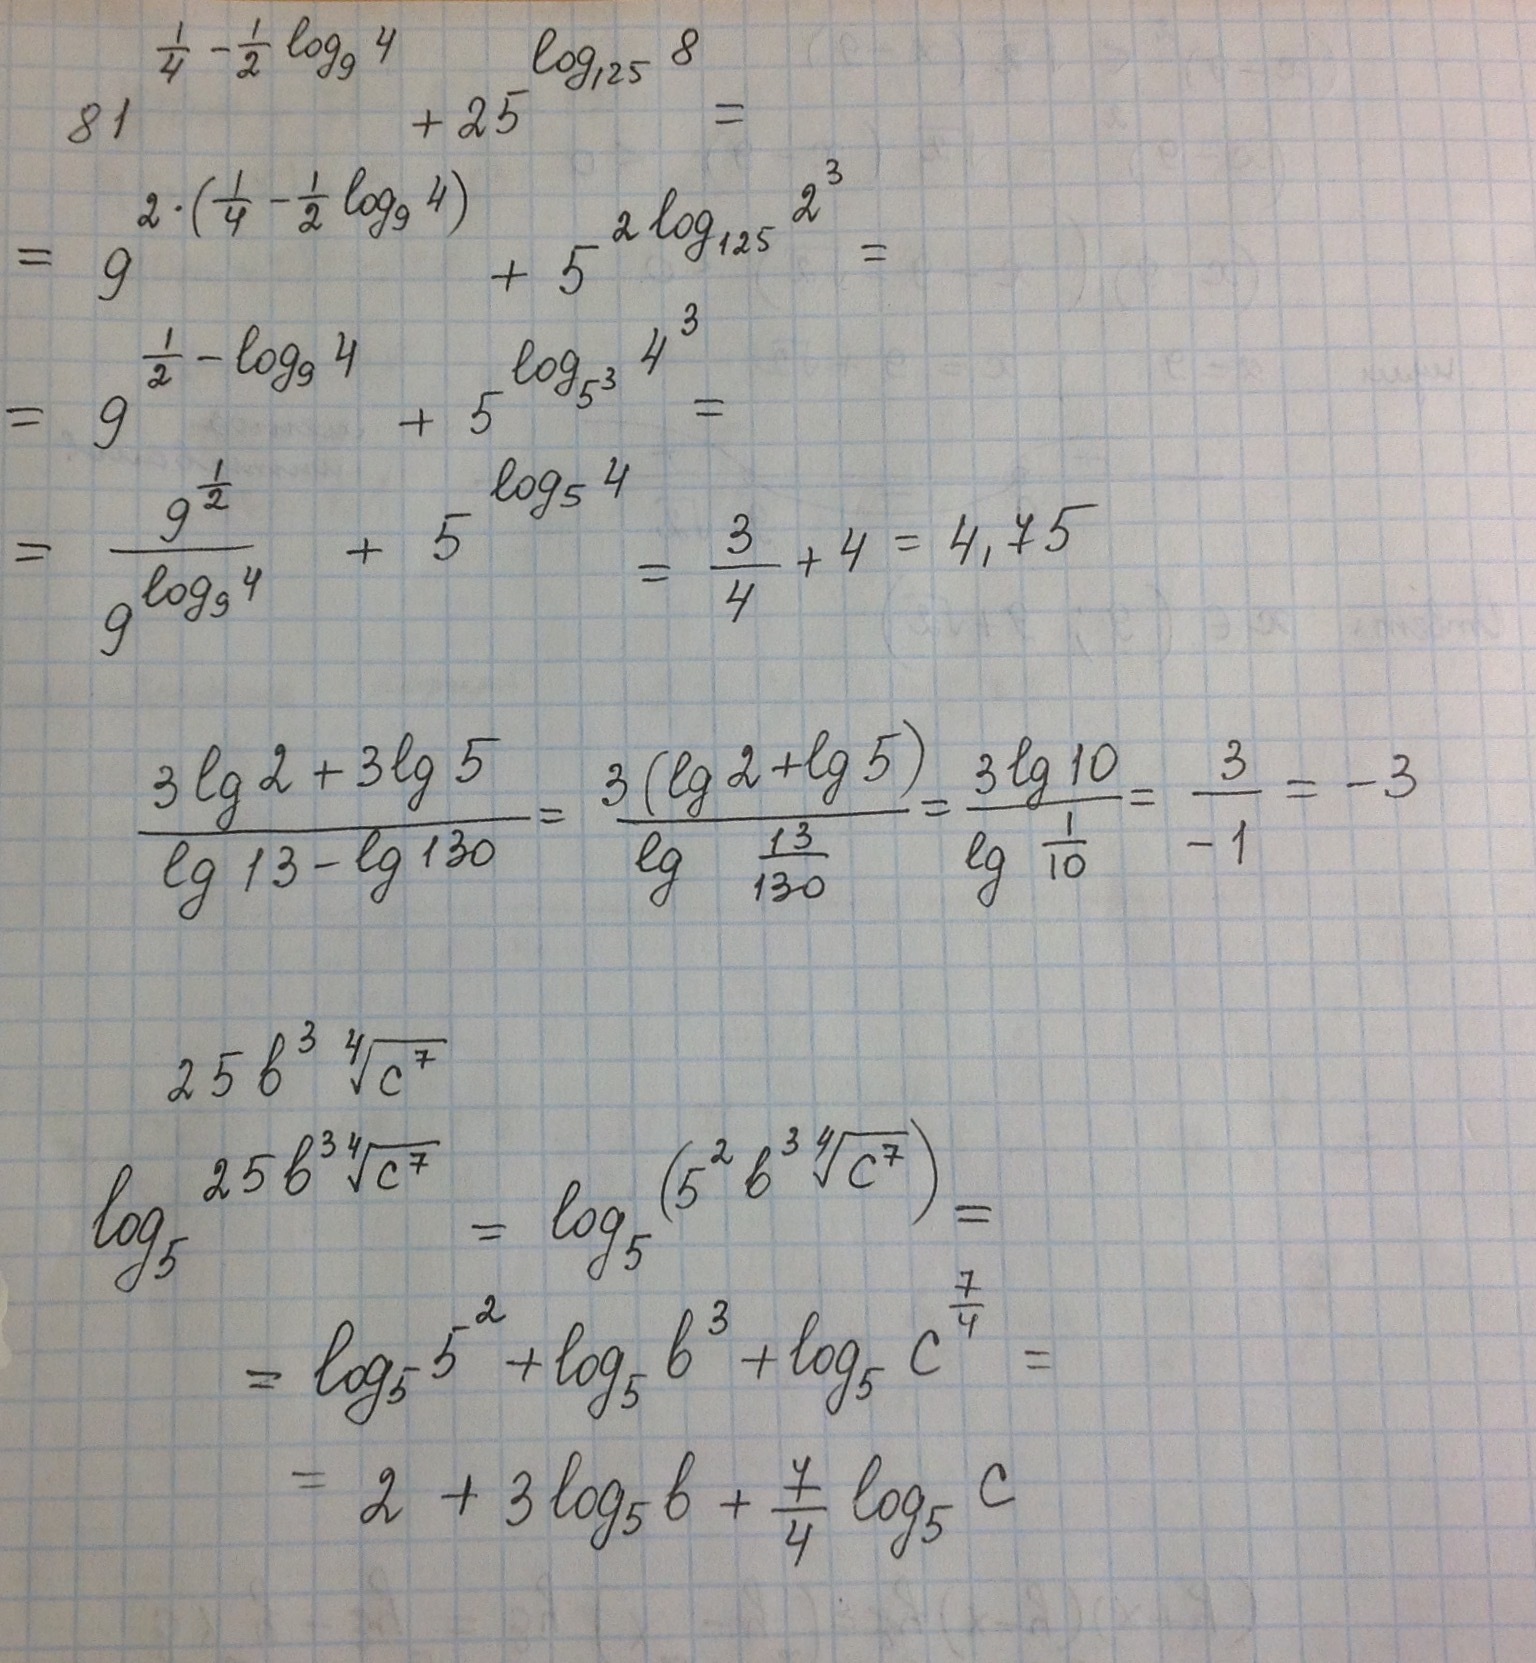 81^{\frac{1}{4} - \frac{1}{2} log_9 4} + 25^{log_{125} 8} =
= 9^{2·(\frac{1}{4} - \frac{1}{2} log_9 4)} + 5^{2 log_{125} 2^3} =
= 9^{\frac{1}{2} - log_9 4} + 5^{log_{5^3} 4^3} =
= \frac{9^{\frac{1}{2}}}{9^{log_9 4}} + 5^{log_5 4} = \frac{3}{4} + 4 = 4,75
\frac{3 lg 2 + 3 lg 5}{lg 13 - lg 130} = \frac{3 (lg 2 + lg 5)}{lg \frac{13}{130}} = \frac{3 lg 10}{lg \frac{1}{10}} = \frac{3}{-1} = -3
25 b^3 \sqrt[4]{c^7}
log_5 25 b^3 \sqrt[4]{c^7} = log_5 (5^2 b^3 \sqrt[4]{c^7}) =
= log_5 5^2 + log_5 b^3 + log_5 c^{\frac{7}{4}} =
= 2 + 3 log_5 b + \frac{7}{4} log_5 c